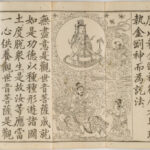 執金剛神而為說法
無盡意是觀世音菩薩成就
如是功德以種種形遊諸國
土度脫眾生是故汝等應當
一心供養觀世音菩薩是觀